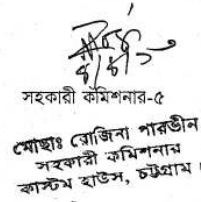 সহকারী কমিশনার-৫
মোছাঃ রোজিনা পারভীন
সহকারী কমিশনার
কাস্টম হাউস, চট্টগ্রাম।